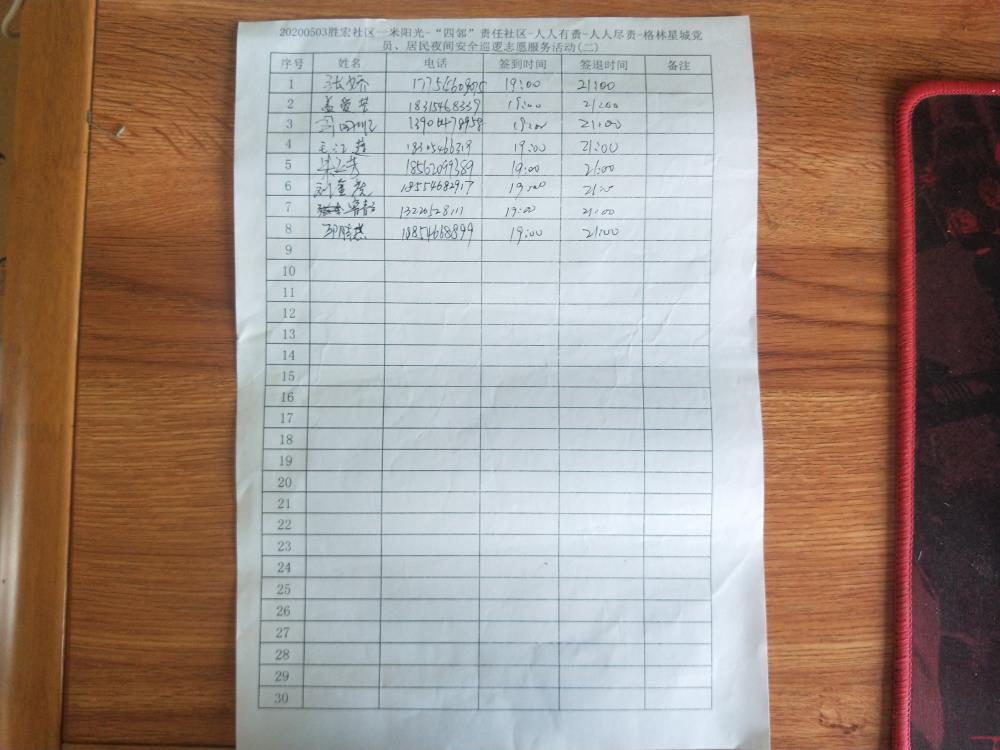 20200503胜宏社区-一米阳光-“四邻”责任社区-人人有责-人人尽责-格林星城党
员、居民夜间安全巡逻志愿服务活动(二)
序号 姓名 电话 签到时间 签退时间 备注
1 张娇 19:00 21:00
2 盖爱芹 18315468339 19:00 21:00
3 19:00 21:00
4 毛江莲 18305466319 19:00 21:00
5 18562099389 19:00 21:00
6 刘金虎 18554682917 19:00 21:00
7 19:00 21:00
8 19:00 21:00
9
10
11
12
13
14
15
16
17
18
19
20
21
22
23
24
25
26
27
28
29
30